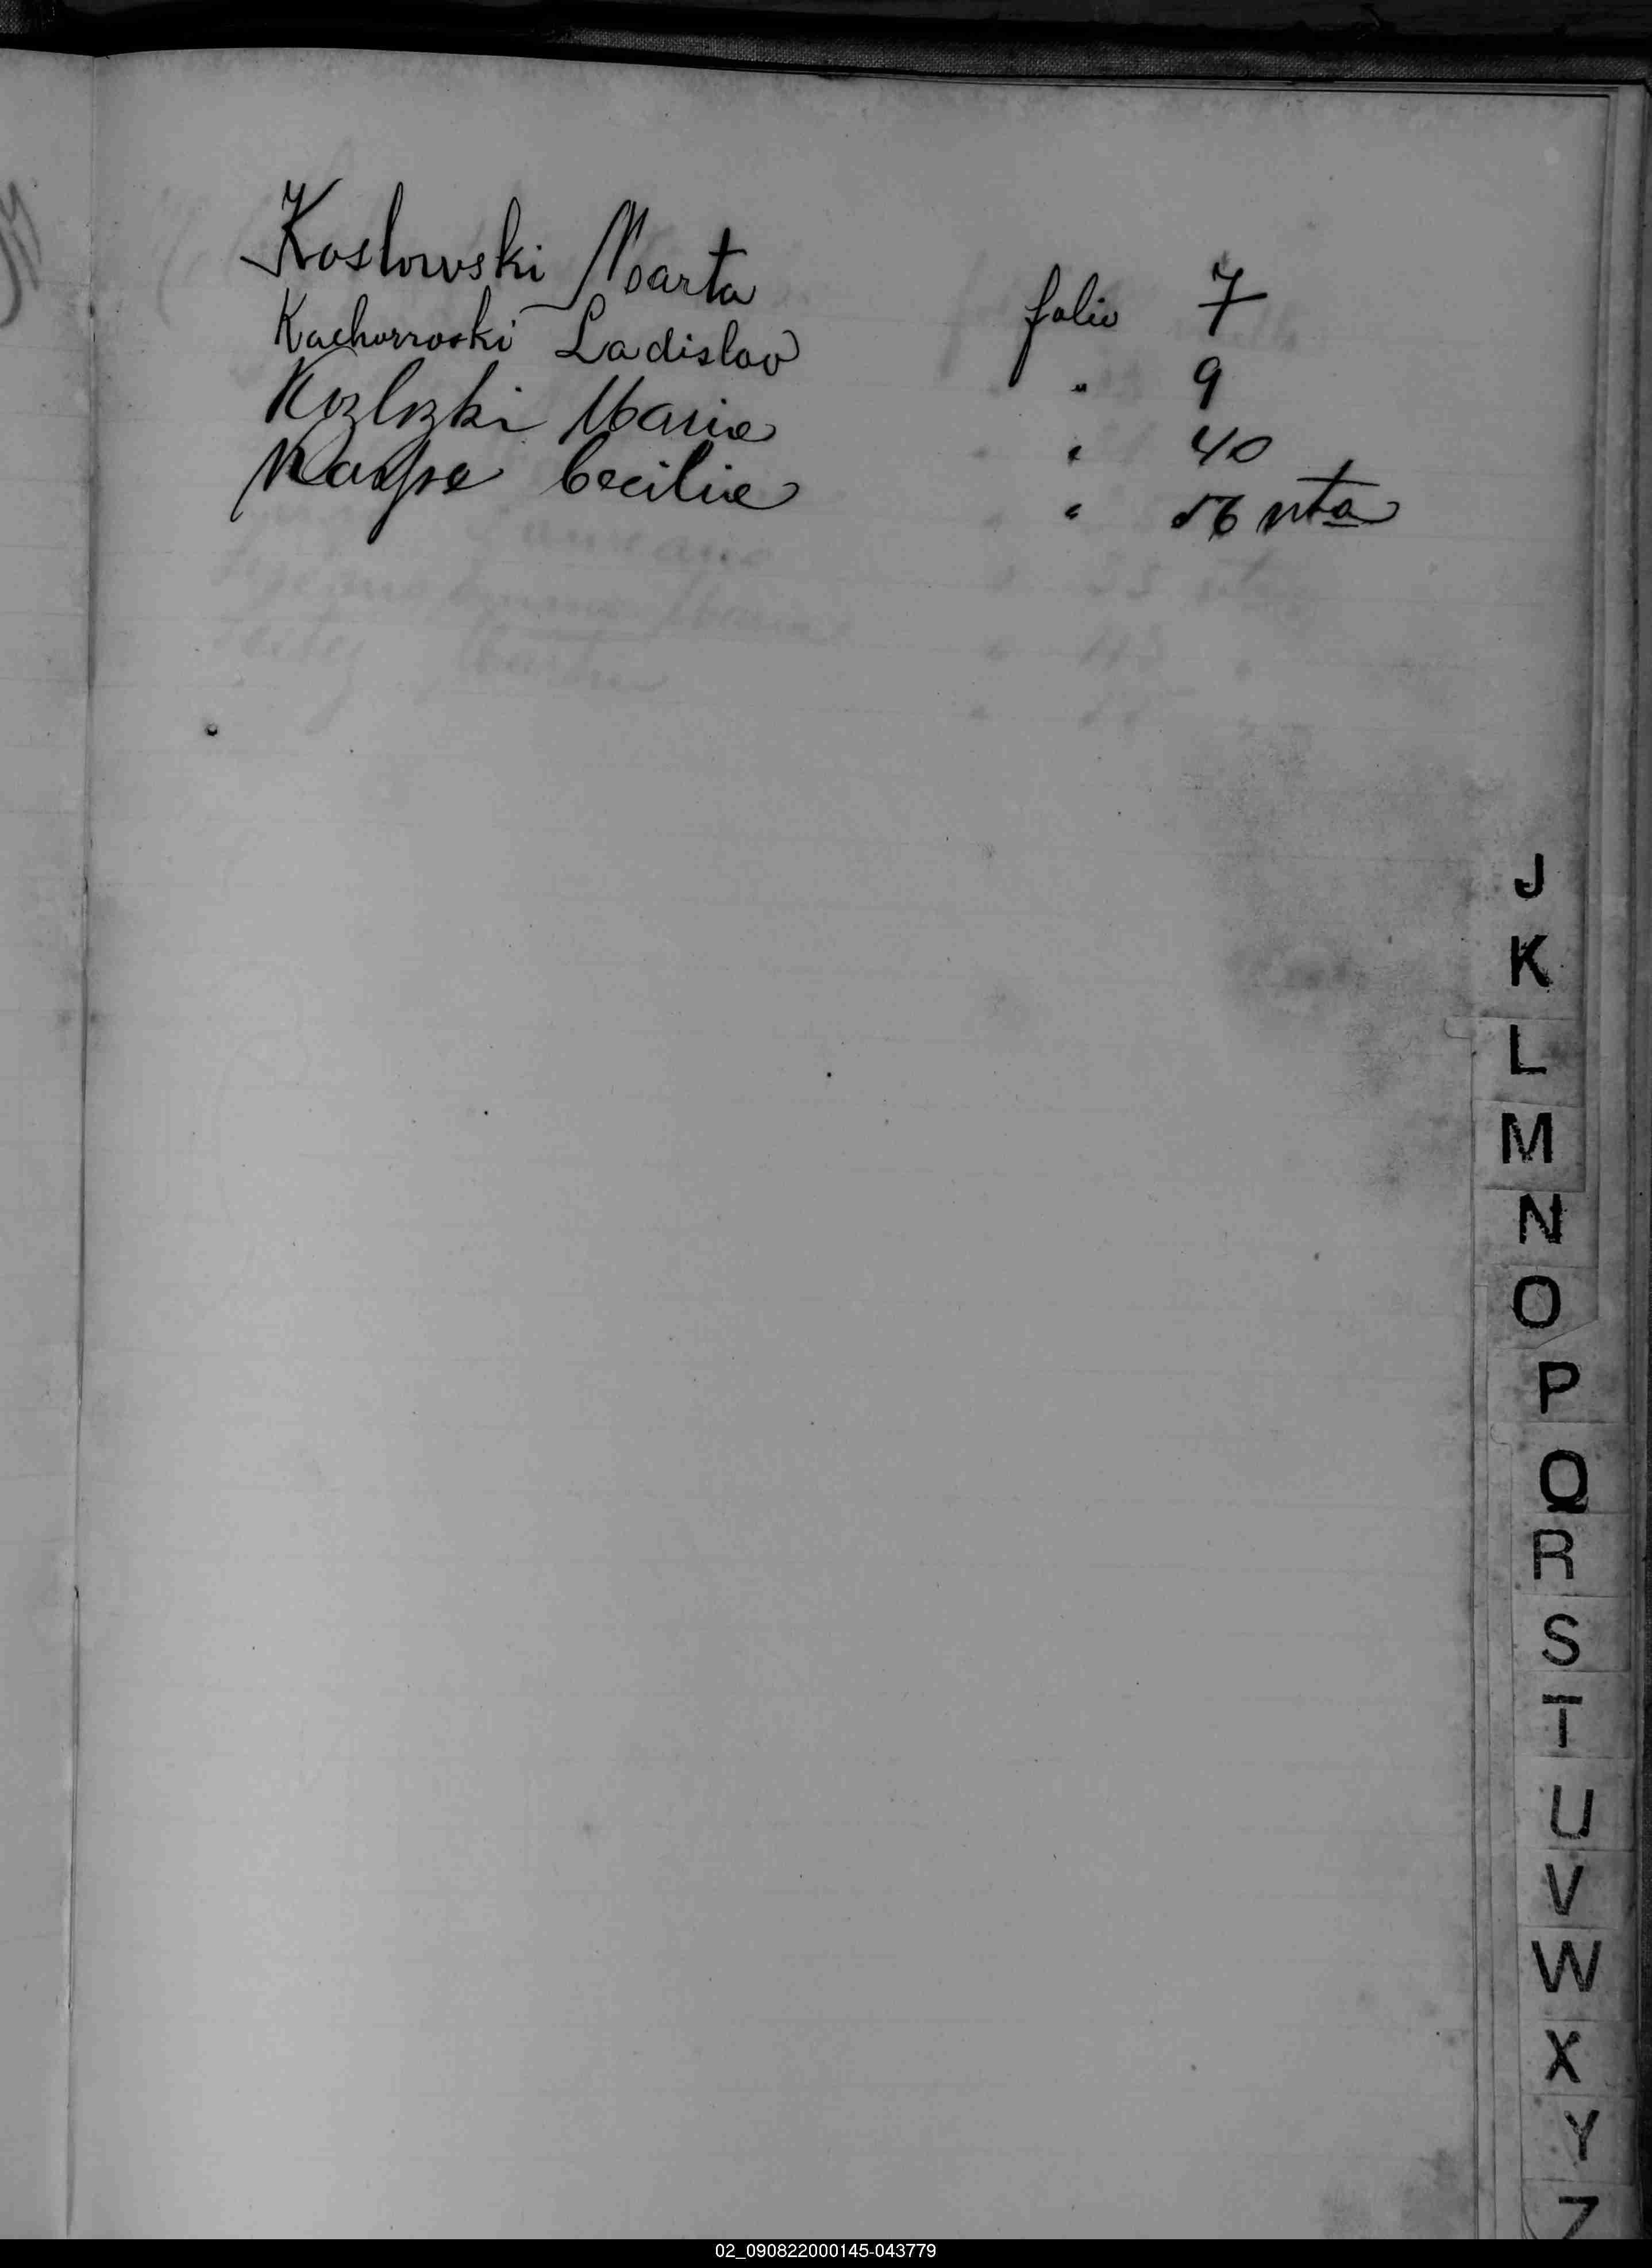 Koslowski Marta folio 7
Kachorroski Ladislao " 9
Kozlozki Maria " 40
Cecilia " 56 vta
J
K
L
M
N
O
P
Q
R
S
T
U
V
W
X
Y
Z
02_090822000145-043779